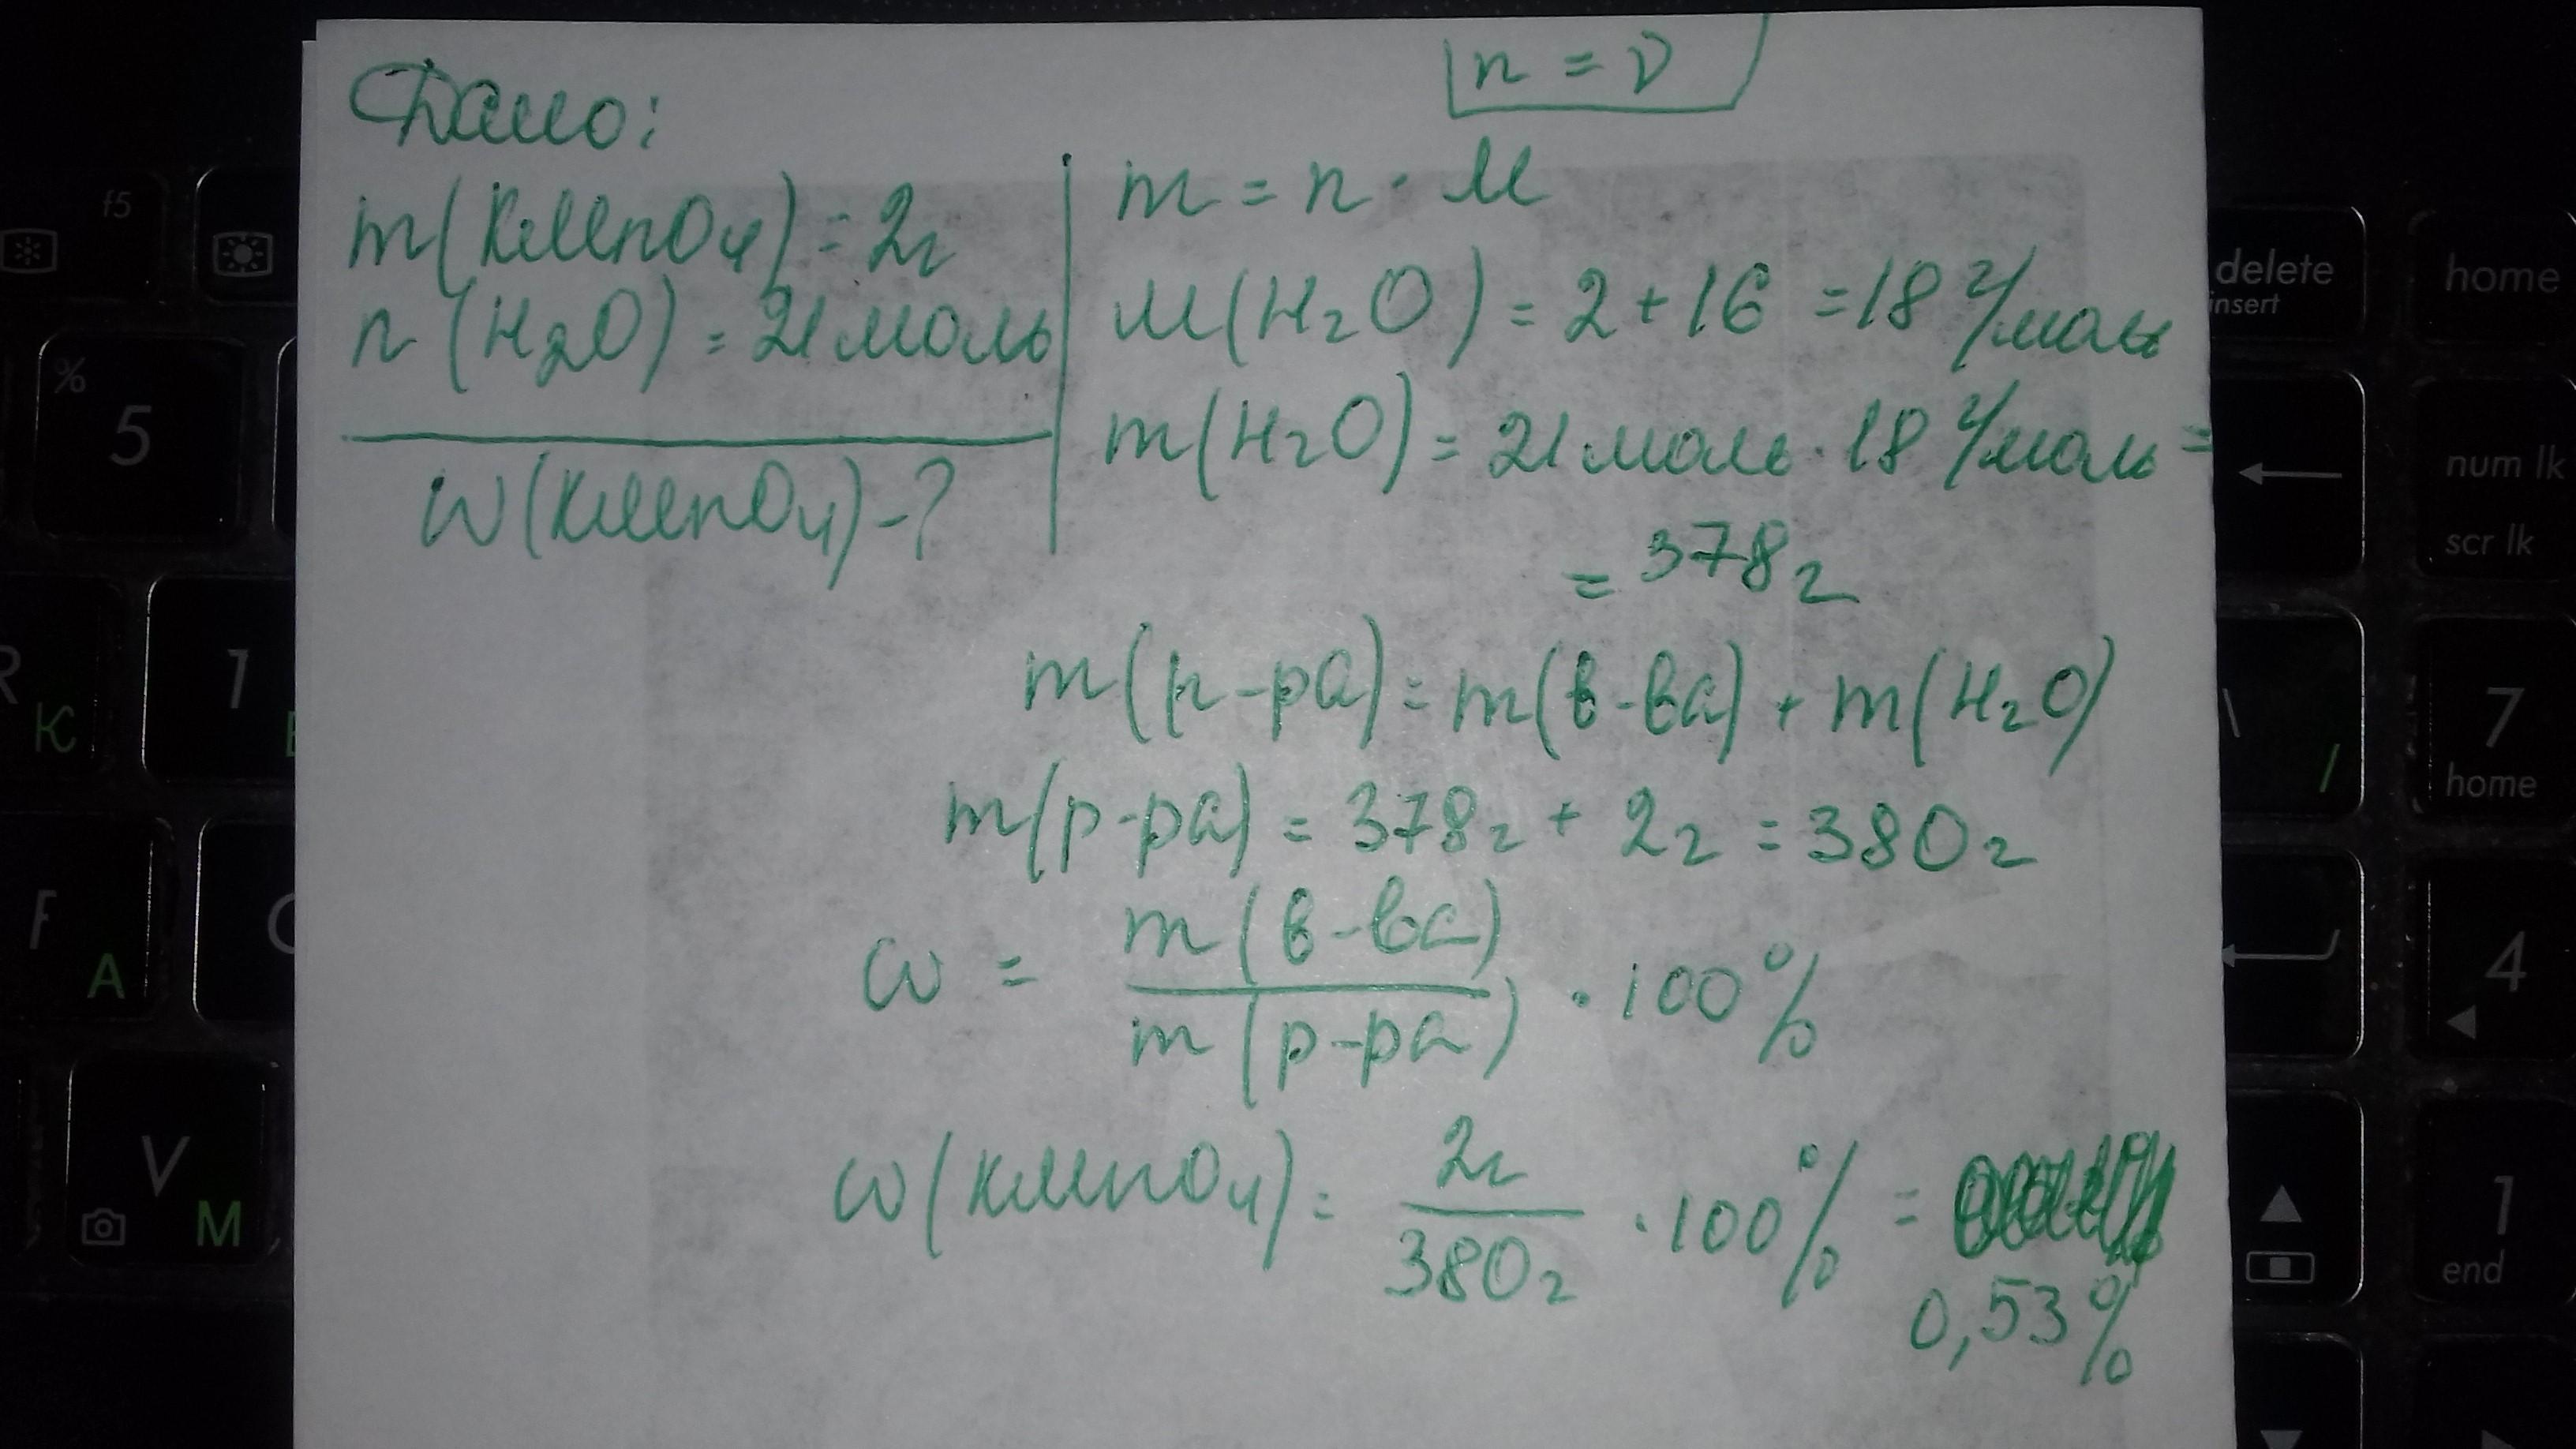 n = ν
Дано:
m(KMnO4) = 2г
n(H2O) = 21 моль
W(KMnO4) - ?
m = n · M
M(H2O) = 2 + 16 = 18 г/моль
m(H2O) = 21 моль · 18 г/моль =
= 378 г
m(р-ра) = m(в-ва) + m(H2O)
m(р-ра) = 378 г + 2 г = 380 г
ω = m(в-ва) / m(р-ра) · 100%
ω(KMnO4) = 2г / 380 г · 100% =
0,53%
f5
delete
insert
home
%
5
num lk
scr lk
R
К
1
\
/
7
home
F
А
4
V
М
1
end